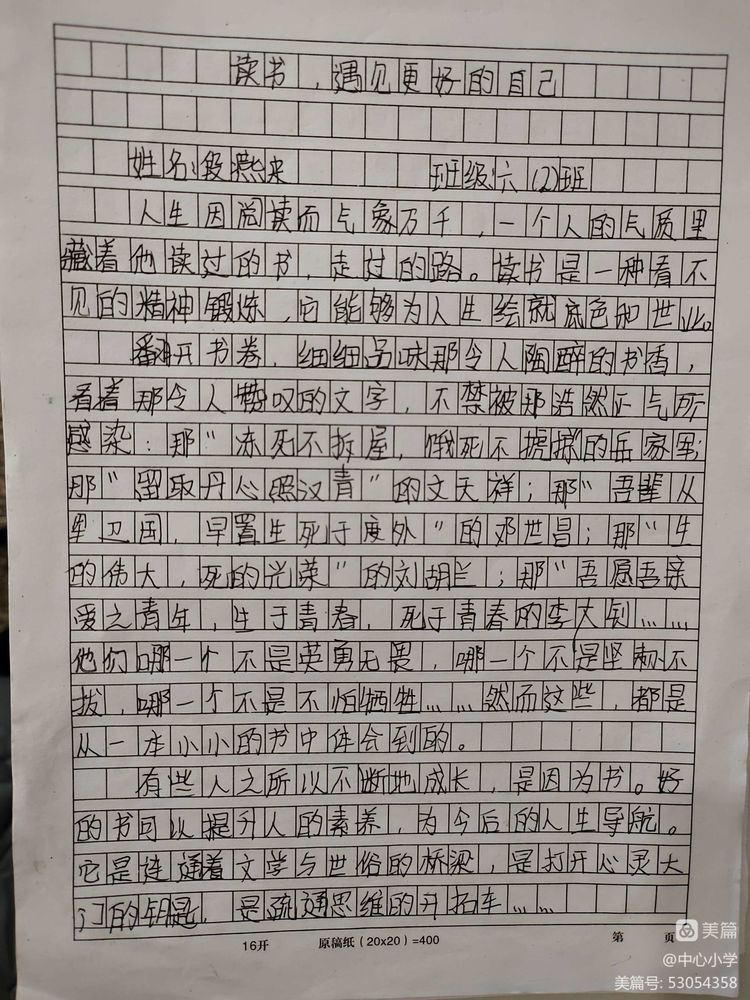 读书，遇见更好的自己
姓名：段燕来 班级：六（2）班
人生因阅读而气象万千，一个人的气质里
藏着他读过的书，走过的路。读书是一种看不
见的精神锻炼，它能够为人生绘就底色和世业。
翻开书卷，细细品味那令人陶醉的书香，
看着那令人赞叹的文字，不禁被那浩然正气所
感染：那“冻死不拆屋，饿死不掳掠”的岳家军；
那“留取丹心照汉青”的文天祥；那“吾辈从
军卫国，早置生死于度外”的邓世昌；那“生
的伟大，死的光荣”的刘胡兰；那“吾愿吾亲
爱之青年，生于青春，死于青春的李大钊……
他们哪一个不是英勇无畏，哪一个不是坚韧不
拔，哪一个不是不怕牺牲……然而这些，都是
从一本小小的书中体会到的。
有些人之所以不断地成长，是因为书。好
的书可以提升人的素养，为今后的人生导航。
它是连通着文学与世俗的桥梁，是打开心灵大
门的钥匙，是疏通思维的开拓车……
16开 原稿纸（20×20）=400 第 页
美篇
@中心小学
美篇号: 53054358